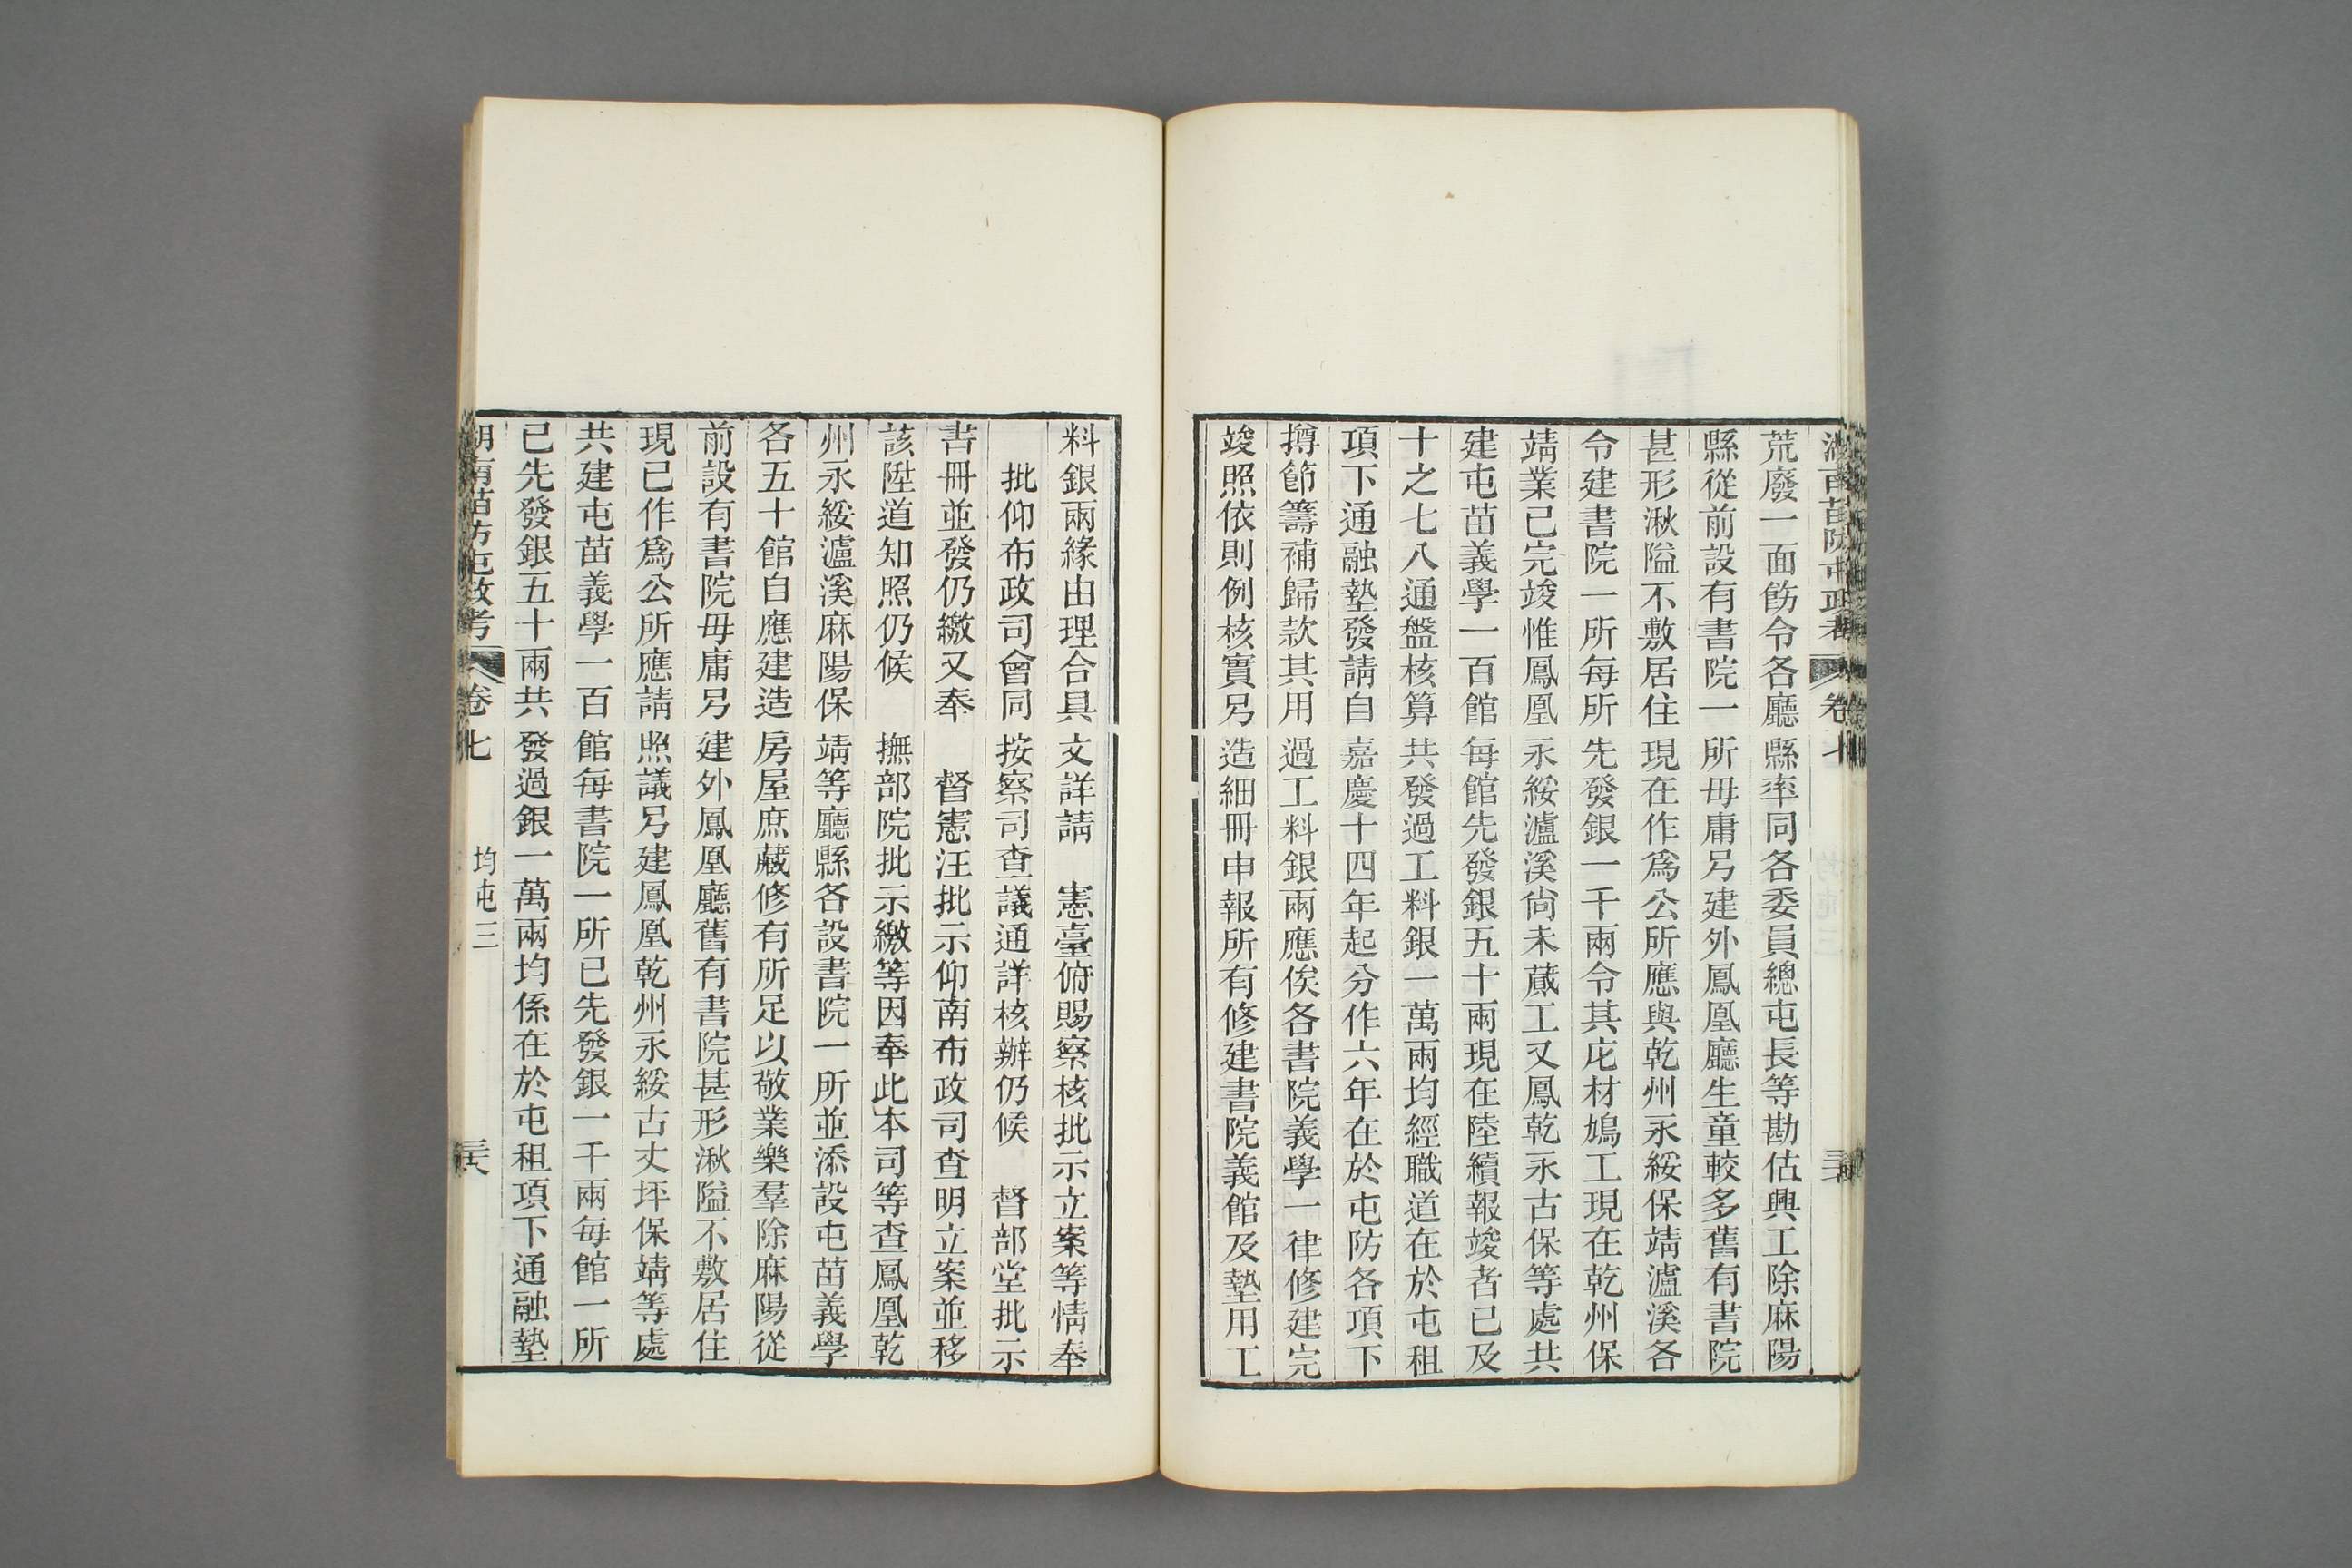 荒廢一面飭令各廳縣率同各委員總屯長等勘估興工除麻陽
縣從前設有書院一所毋庸另建外鳳凰廳生童較多舊有書院
甚形湫隘不敷居住現在作爲公所應與乾州永綏保靖瀘溪各
令建書院一所每所先發銀一千兩令其庀材鳩工現在乾州保
靖業已完竣惟鳳凰永綏瀘溪尙未蕆工又鳳乾永古保等處共
建屯苗義學一百館每館先發銀五十兩現在陸續報竣者已及
十之七八通盤核算共發過工料銀一萬兩均經職道在於屯租
項下通融墊發請自嘉慶十四年起分作六年在於屯防各項下
撙節籌補歸款其用過工料銀兩應俟各書院義學一律修建完
竣照依則例核實另造細冊申報所有修建書院義館及墊用工
料銀兩緣由理合具文詳請　憲臺俯賜察核批示立案等情奉
批仰布政司會同按察司查議通詳核辦仍候　督部堂批示
書冊並發仍繳又奉　督憲汪批示仰南布政司查明立案並移
該陞道知照仍候　撫部院批示繳等因奉此本司等查鳳凰乾
州永綏瀘溪麻陽保靖等廳縣各設書院一所並添設屯苗義學
各五十館自應建造房屋庶藏修有所足以敬業樂羣除麻陽從
前設有書院毋庸另建外鳳凰廳舊有書院甚形湫隘不敷居住
現已作爲公所應請照議另建鳳凰乾州永綏古丈坪保靖等處
共建屯苗義學一百館每書院一所已先發銀一千兩每館一所
已先發銀五十兩共發過銀一萬兩均係在於屯租項下通融墊
湖南苗防屯政考　卷七　均屯三